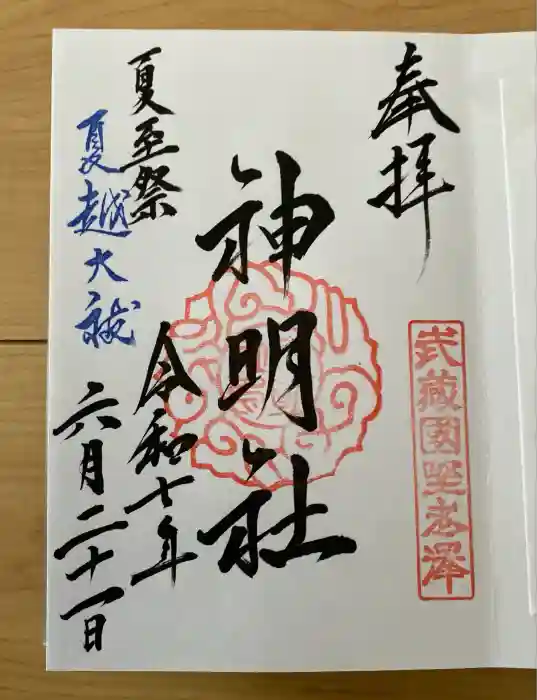 奉拝
武蔵國野老澤
神明社
夏至祭
令和七年
夏越大祓
六月二十一日